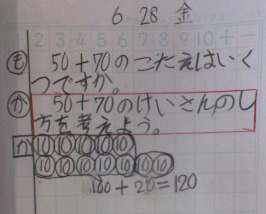 6 28 金
2 3 4 5 6 7 8 9 10 + −
も 50+70のこたえはいく
つですか。
か 50+70のけいさんのし
方を考えよう。
か 10 10 10 10 10
10 10 10 10 10 10 10
100+20=120